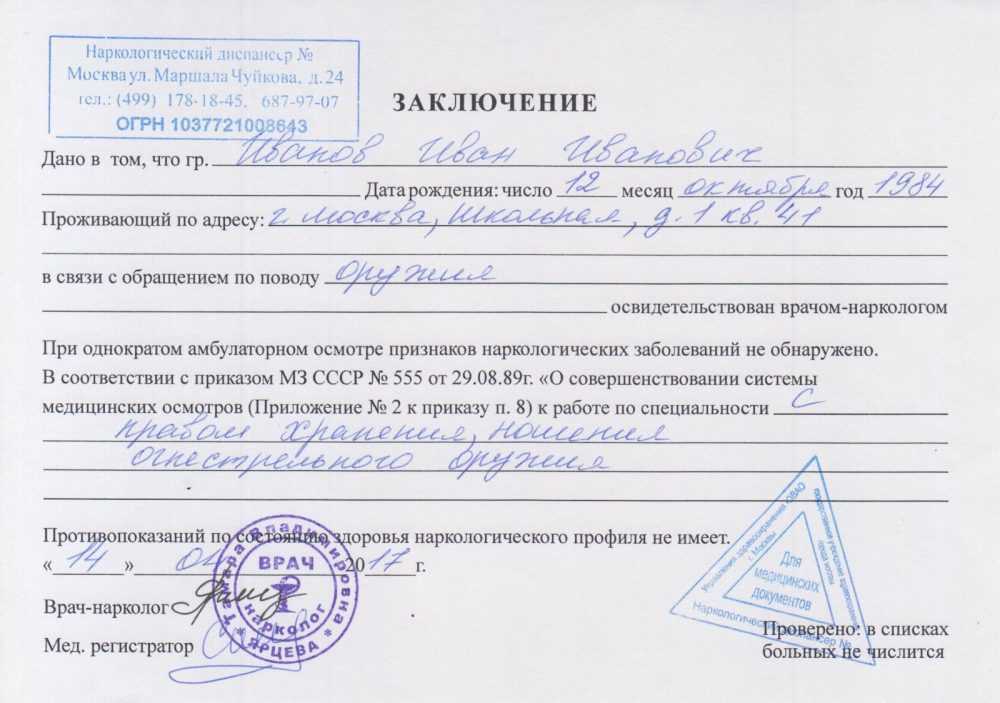 Наркологический диспансер №
Москва ул. Маршала Чуйкова, д. 24
тел.: (499) 178-18-45, 687-97-07
ОГРН 1037721008643
ЗАКЛЮЧЕНИЕ
Дано в том, что гр. Иванов Иван Иванович
Дата рождения: число 12 месяц октября год 1984
Проживающий по адресу: г. Москва, Школьная, д. 1 кв. 41
в связи с обращением по поводу оружия
освидетельствован врачом-наркологом
При однократом амбулаторном осмотре признаков наркологических заболеваний не обнаружено.
В соответствии с приказом МЗ СССР № 555 от 29.08.89г. «О совершенствовании системы
медицинских осмотров (Приложение № 2 к приказу п. 8) к работе по специальности с
правом хранения, ношения
огнестрельного оружия
Противопоказаний по состоянию здоровья наркологического профиля не имеет.
«14» 2017г.
Врач-нарколог
Мед. регистратор
Тамара Владимировна
* ЯРЦЕВА *
ВРАЧ
нарколог
Управление здравоохранения ЮВАО
г. Москвы
государственное учреждение здравоохранения
города москвы
Наркологический диспансер №
Для
медицинских
документов
Проверено: в списках
больных не числится